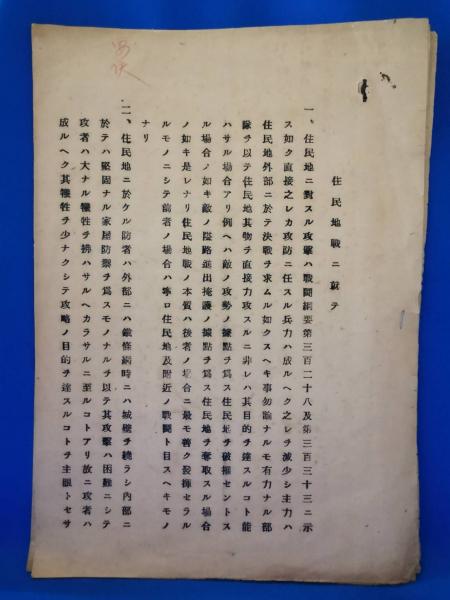 住民地戰ニ就テ
一、住民地ニ對スル攻擊ハ戰鬪綱要第三百二十八及第三百三十三ニ示
ス如ク直接之レカ攻防ニ任スル兵力ハ成ルヘク之レヲ減少シ主力ハ
住民地外部ニ於テ決戰ヲ求ムル如クスヘキ事勿論ナルモ有力ナル部
隊ヲ以テ住民地其物ヲ直接力攻スルニ非レハ其目的ヲ達スルコト能
ハサル場合アリ例ヘハ敵ノ攻勢ノ據點ヲ爲ス住民地ヲ破摧セントス
ル場合ノ如キ敵ノ隘路進出掩護ノ據點ヲ爲ス住民地ヲ奪取スル場合
ノ如キ是レナリ住民地戰ノ本質ハ後者ノ場合ニ最モ善ク發揮セラル
ルモノニシテ前者ノ場合ハ寧ロ住民地及附近ノ戰鬪ト目スヘキモノ
ナリ
二、住民地ニ於ケル防者ハ外部ニハ鐵條網時ニハ城壁ヲ繞ラシ內部ニ
於テハ堅固ナル家屋防禦ヲ爲スモノナルヲ以テ其攻擊ハ困難ニシテ
攻者ハ大ナル犧牲ヲ拂ハサルヘカラサルニ至ルコトアリ故ニ攻者ハ
成ルヘク其犧牲ヲ少ナクシテ攻略ノ目的ヲ達スルコトヲ主眼トセサ